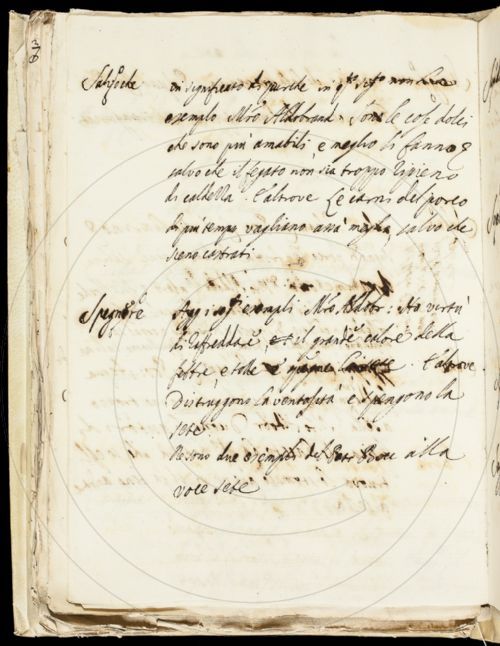 Salvoche in significato di purche in q.to sig.to non ha
esemplo Mro. Aldobrand. Sono le cose dolci
che sono più amabili e meglio li fanno
salvo che il fegato non sia troppo ripieno
di caldezza. E altrove Le carni del porco
di più tempo vagliano salvo che
sieno castrati
Spegnere Agg: i seg.ti esempli Mro. Aldobr: Ha vertù
di raffreddare et il grande calore della
febre e tolle E altrove
Distruggono la ventosità e spengono la
sete
Ne sono due esempli del Petr Bocc alla
voce sete